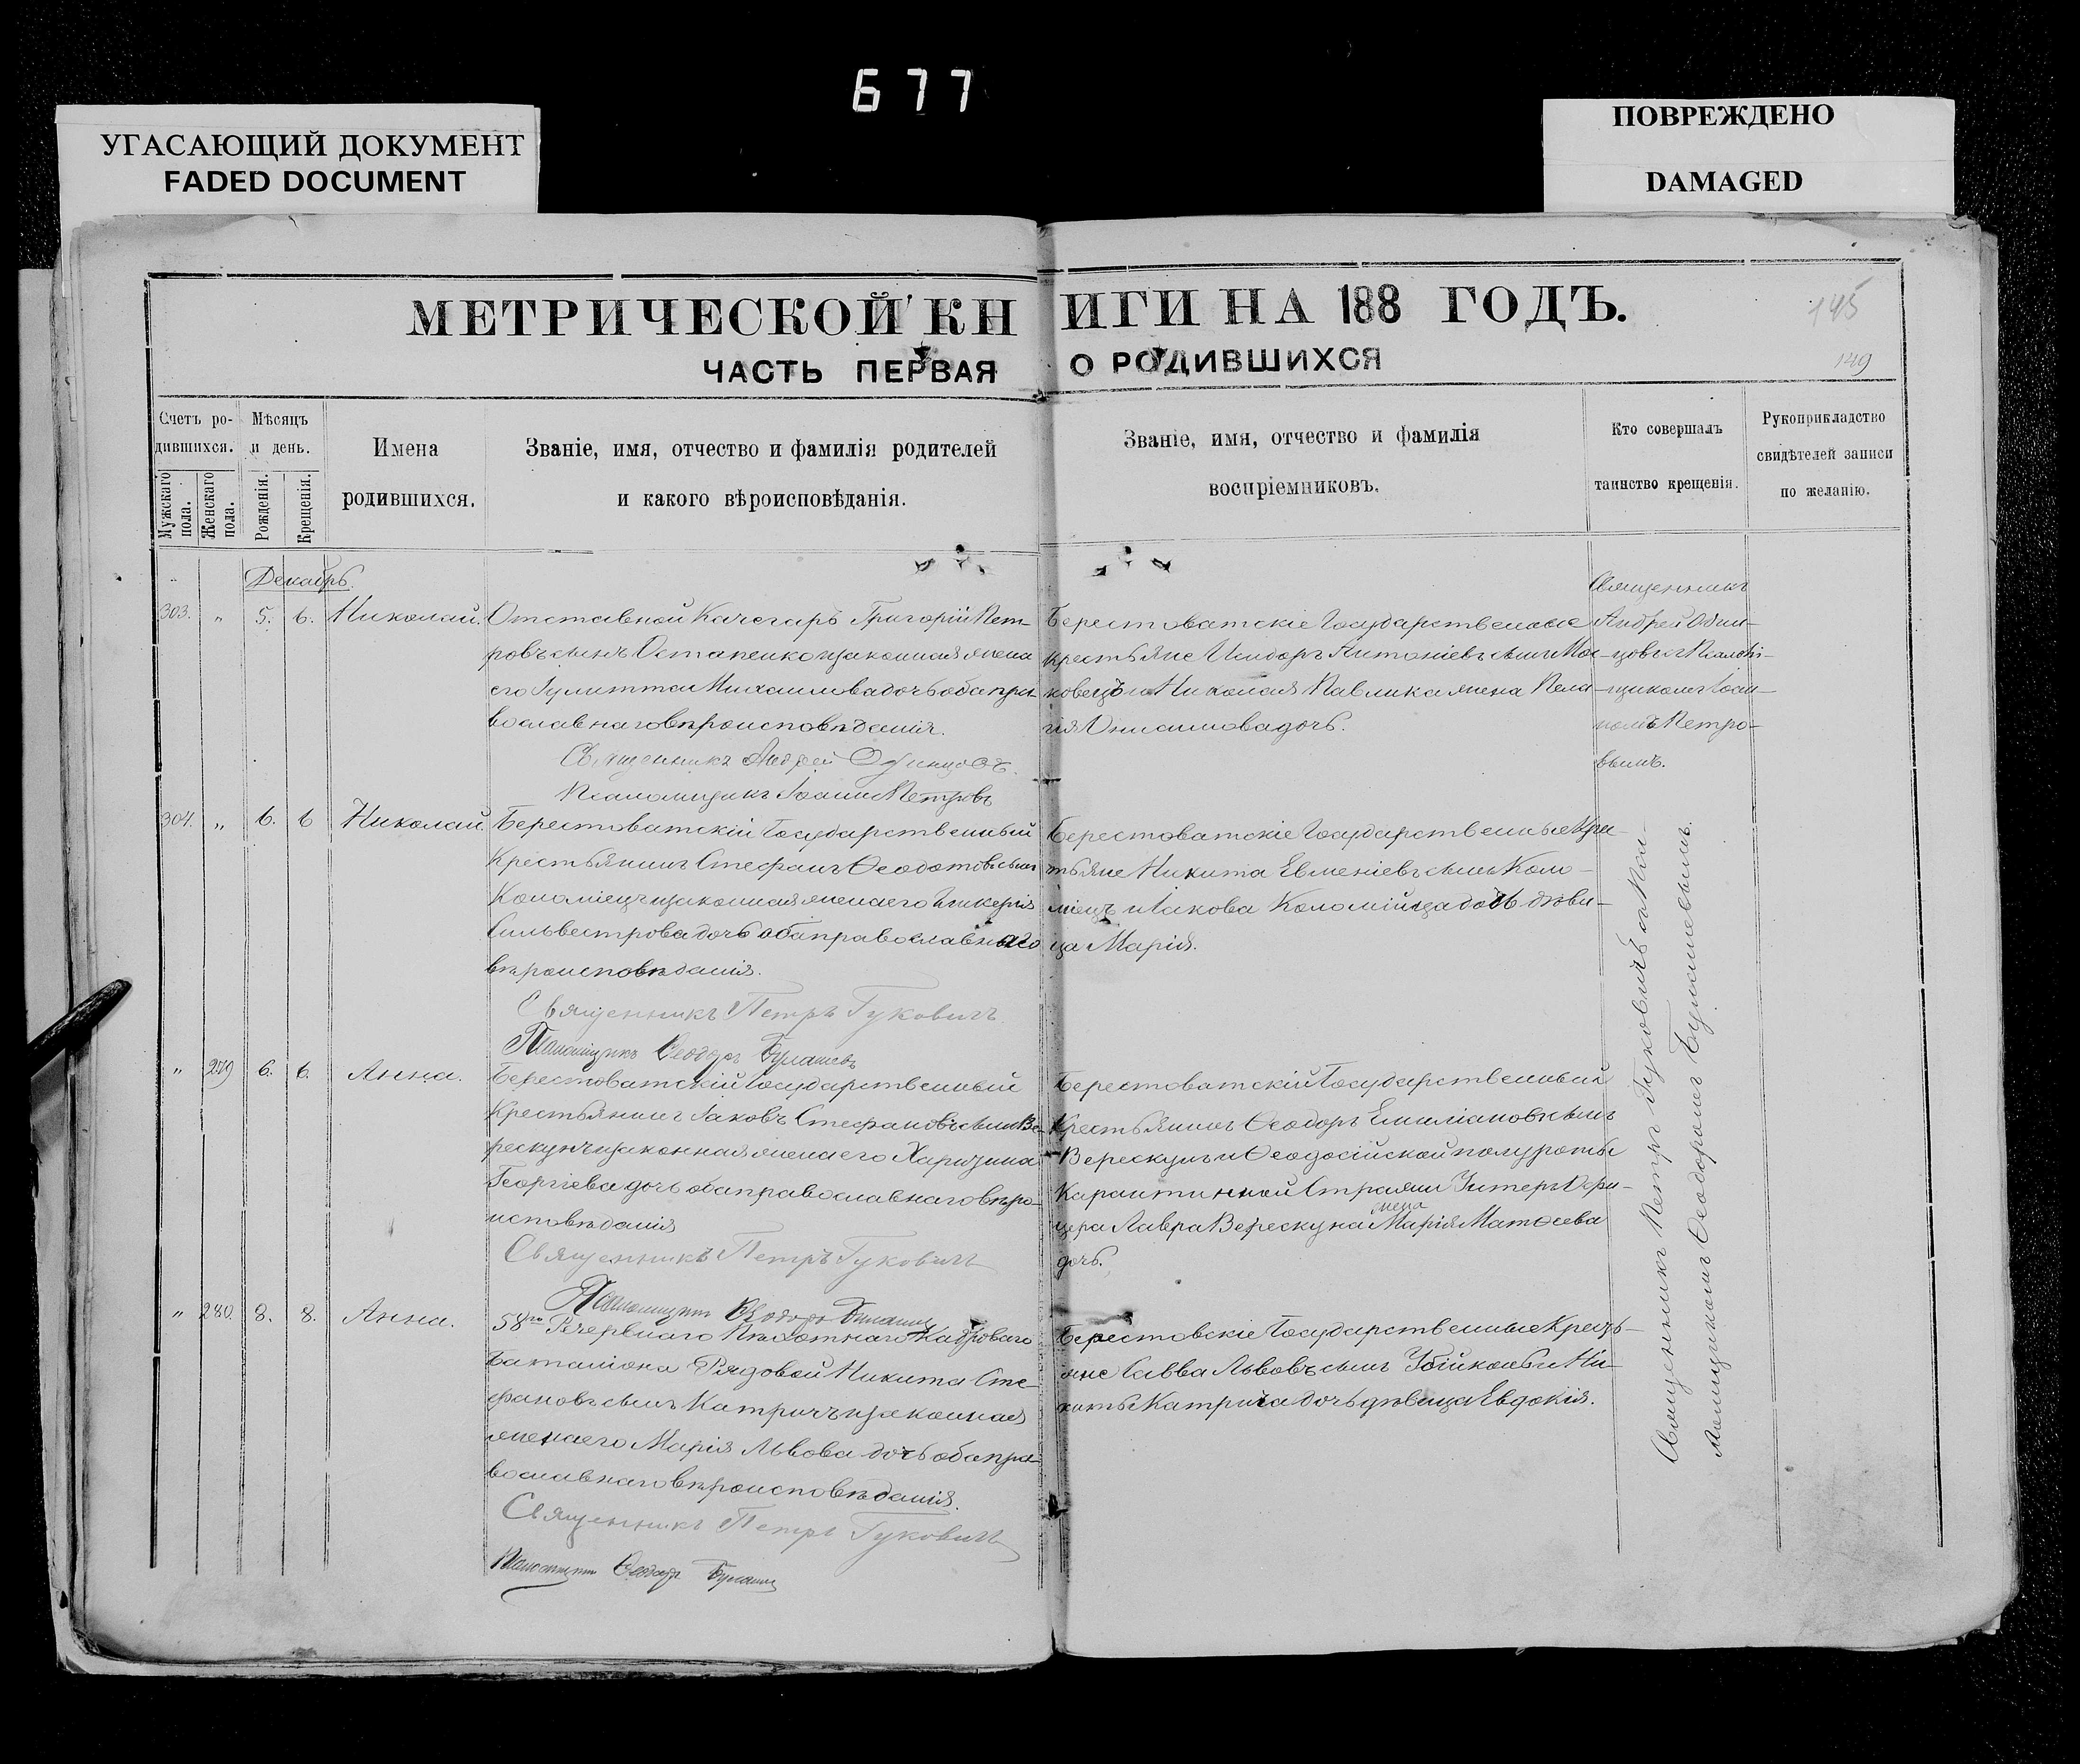 677
УГАСАЮЩИЙ ДОКУМЕНТ
FADED DOCUMENT
ПОВРЕЖДЕНО
DAMAGED
МЕТРИЧЕСКОЙ КНИГИ НА 188 ГОДЪ.
145
ЧАСТЬ ПЕРВАЯ О РОДИВШИХСЯ
149
Счетъ ро-
дившихся.
Мужскаго пола.
Женскаго пола.
Мѣсяцъ
и день.
Рожденія.
Крещенія.
Имена
родившихся.
Званіе, имя, отчество и фамилія родителей
и какого вѣроисповѣданія.
Званіе, имя, отчество и фамилія
воспріемниковъ.
Кто совершалъ
таинство крещенія.
Рукоприкладство
свидѣтелей записи
по желанію.
Декабрь.
303. „ 5. 6. Николай.
Отставной Качегаръ Григорій Пет-
ровъ сынъ Остапенко и законная жена
его Гулитта Михаилова дочь оба пра-
вославнаго вѣроисповѣданія.
Священникъ Андрей Одинцовъ.
Псаломщикъ Іоаннъ Петровъ
Берестоватскіе Государственные
крестьяне Исидоръ Антоніевъ сынъ Мос-
ковецъ и Николая Павлика жена Пела-
гія Онисимова дочь.
Священникъ
Андрей Один-
цовъ съ Псалом-
щикомъ Іоан-
номъ Петро-
вымъ.
304. „ 6. 6 Николай.
Берестоватскій Государственный
Крестьянинъ Стефанъ Ѳеодотовъ сынъ
Коломіецъ и законная жена его Гликерія
Сильвестрова дочь оба православнаго
вѣроисповѣданія.
Священникъ Петръ Гуковичъ
Псаломщикъ Ѳеодоръ Булашевъ
Берестоватскіе Государственные Крес-
тьяне Никита Евменіевъ сынъ Коло-
міецъ и Іакова Коломійца дочь дѣви-
ца Марія.
„ 279 6. 6. Анна.
Берестоватскій Государственный
Крестьянинъ Іаковъ Стефановъ сынъ Ве-
рескунъ и законная жена его Харитина
Георгіева дочь оба православнаго вѣро-
исповѣданія
Священникъ Петръ Гуковичъ
Псаломщикъ Ѳеодоръ Булашевъ
Берестоватскій Государственный
Крестьянинъ Ѳеодоръ Емиліановъ сынъ
Верескунъ и Ѳеодосійской полуроты
Карантинной Стражи Унтеръ Офи-
цера Лавра Верескуна жена Марія Матѳеева
дочь.
„ 280. 8. 8. Анна.
58го Резервнаго Пѣхотнаго Кадроваго
Баталіона Рядовой Никита Сте-
фановъ сынъ Катричъ и законная
жена его Марія Львова дочь оба пра-
вославнаго вѣроисповѣданія.
Священникъ Петръ Гуковичъ
Псаломщикъ Ѳеодоръ Булашевъ
Берестовскіе Государственные Кресть-
яне Савва Львовъ сынъ Убійконь и Ни-
киты Катрича дочь дѣвица Евдокія.
Священникъ Петръ Гуковичъ съ Пса-
ломщикомъ Ѳеодоромъ Булашевымъ.